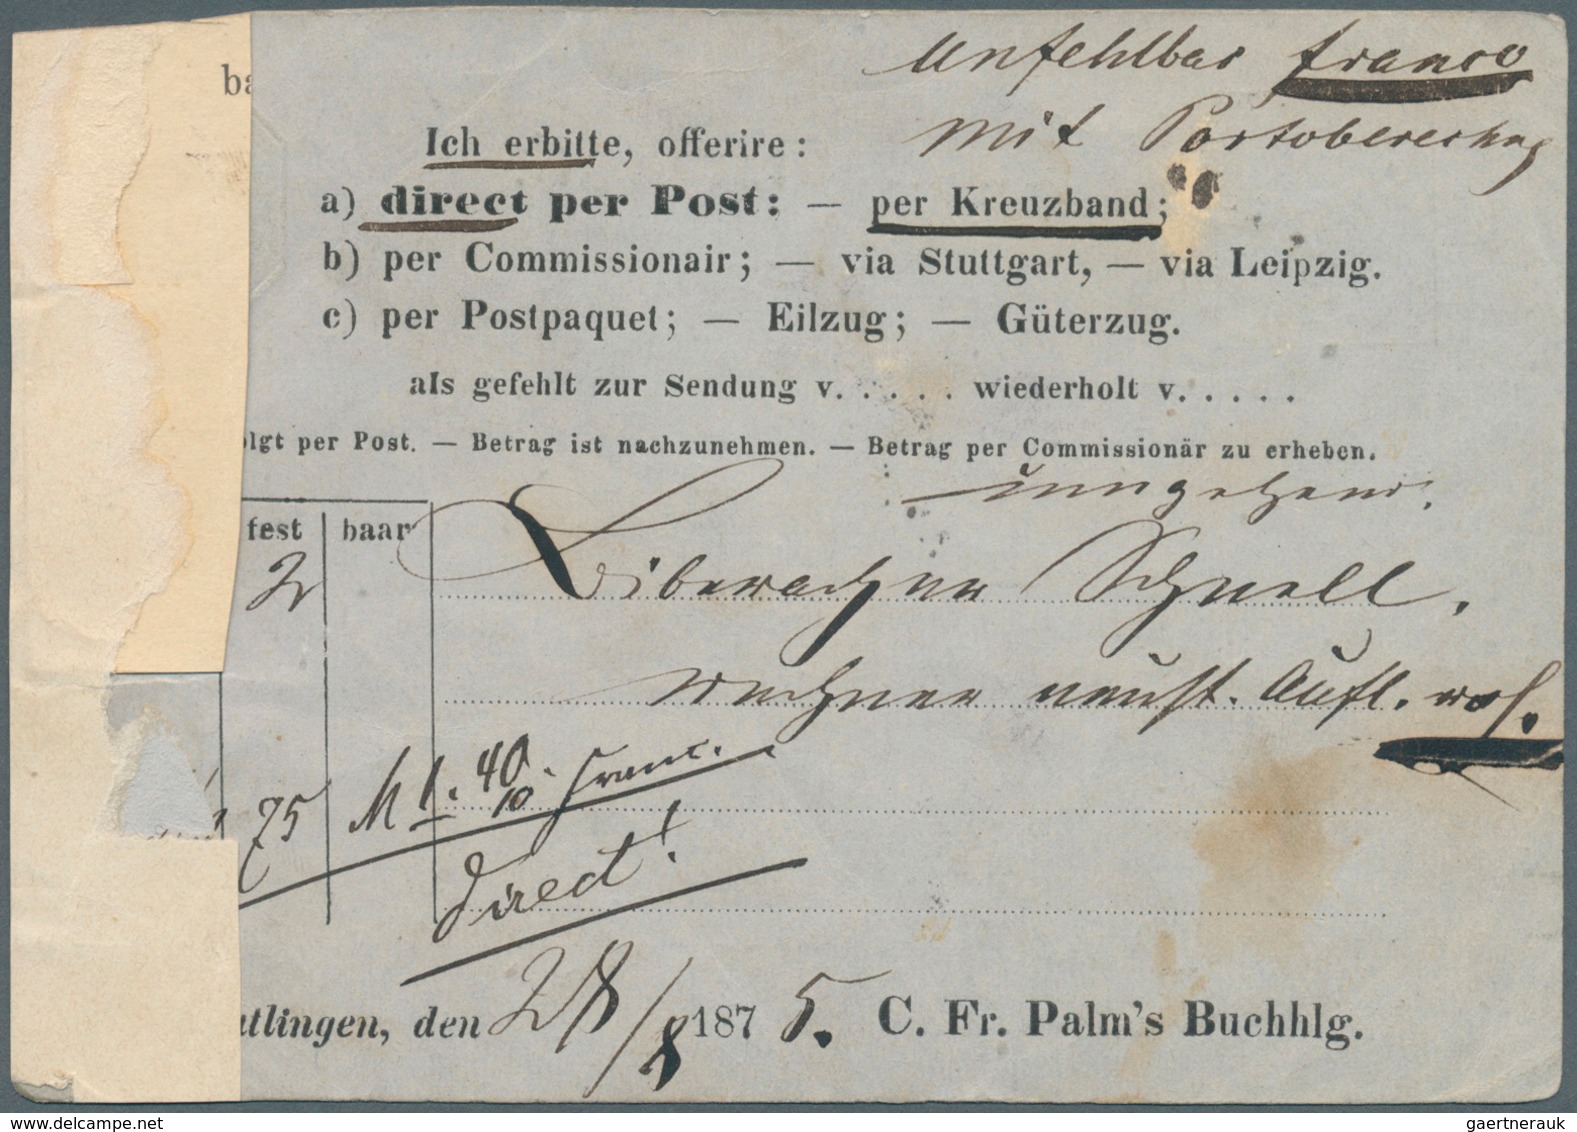 Unfehlbar franco
ba
mit Portoberechng
Ich erbitte, offerire:
a) direct per Post: — per Kreuzband;
b) per Commissionair; — via Stuttgart, — via Leipzig.
c) per Postpaquet; — Eilzug; — Güterzug.
als gefehlt zur Sendung v. . . . . wiederholt v. . . . .
olgt per Post. — Betrag ist nachzunehmen. — Betrag per Commissionär zu erheben.
umgehend.
fest baar
2 Biberacher Schnell.
rechner neust. Aufl.
75 M 1. 40 10 franc.
Direct!
utlingen, den 28/8 1875. C. Fr. Palm's Buchhlg.
www.delcampe.net
gaertnerauk